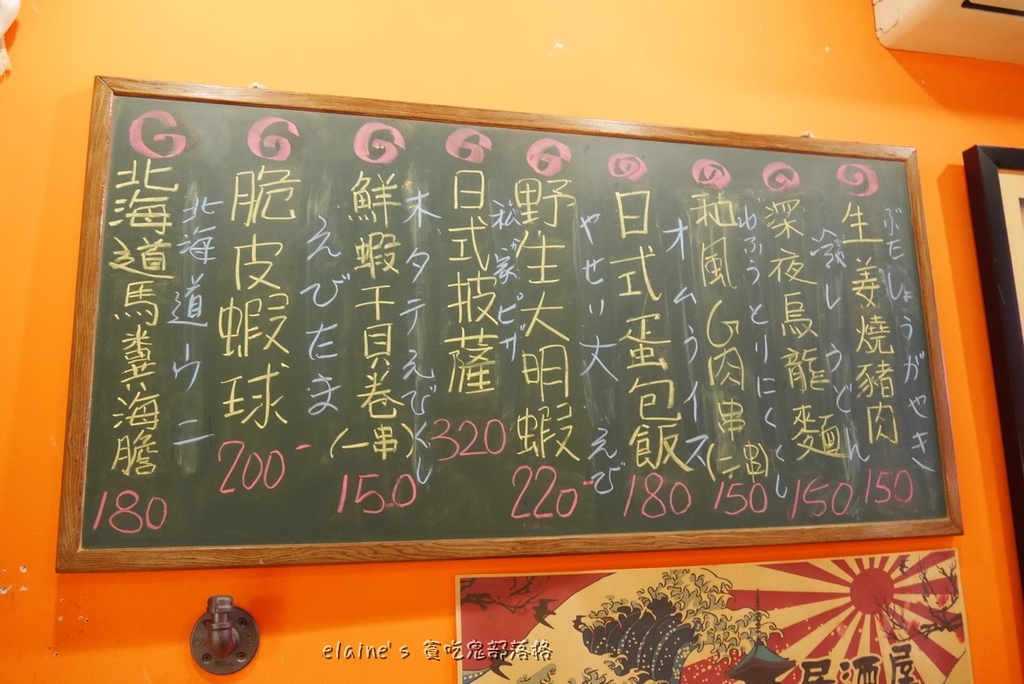 ぶたしょうがやき
生姜燒豬肉
150
冷しうどん
深夜烏龍麵
150
わふうとりにくくし
和風G肉串(一串)
150
オムうイス
日式蛋包飯
180
やせい大えび
野生大明蝦
220-
ピザ
日式披薩
320
木タテえびくし
鮮蝦干貝卷(一串)
150
えびたま
脆皮蝦球
200-
北海道ウニ
北海道馬糞海膽
180
居酒屋
elaine's 貪吃鬼部落格